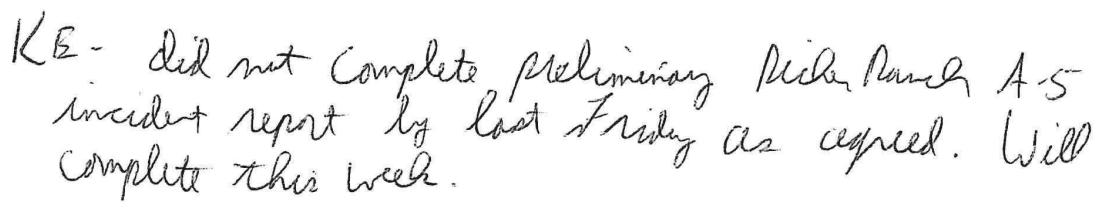 KE - did not complete preliminary Ranch A-5
incident report by last Friday as agreed. Will
complete this week.